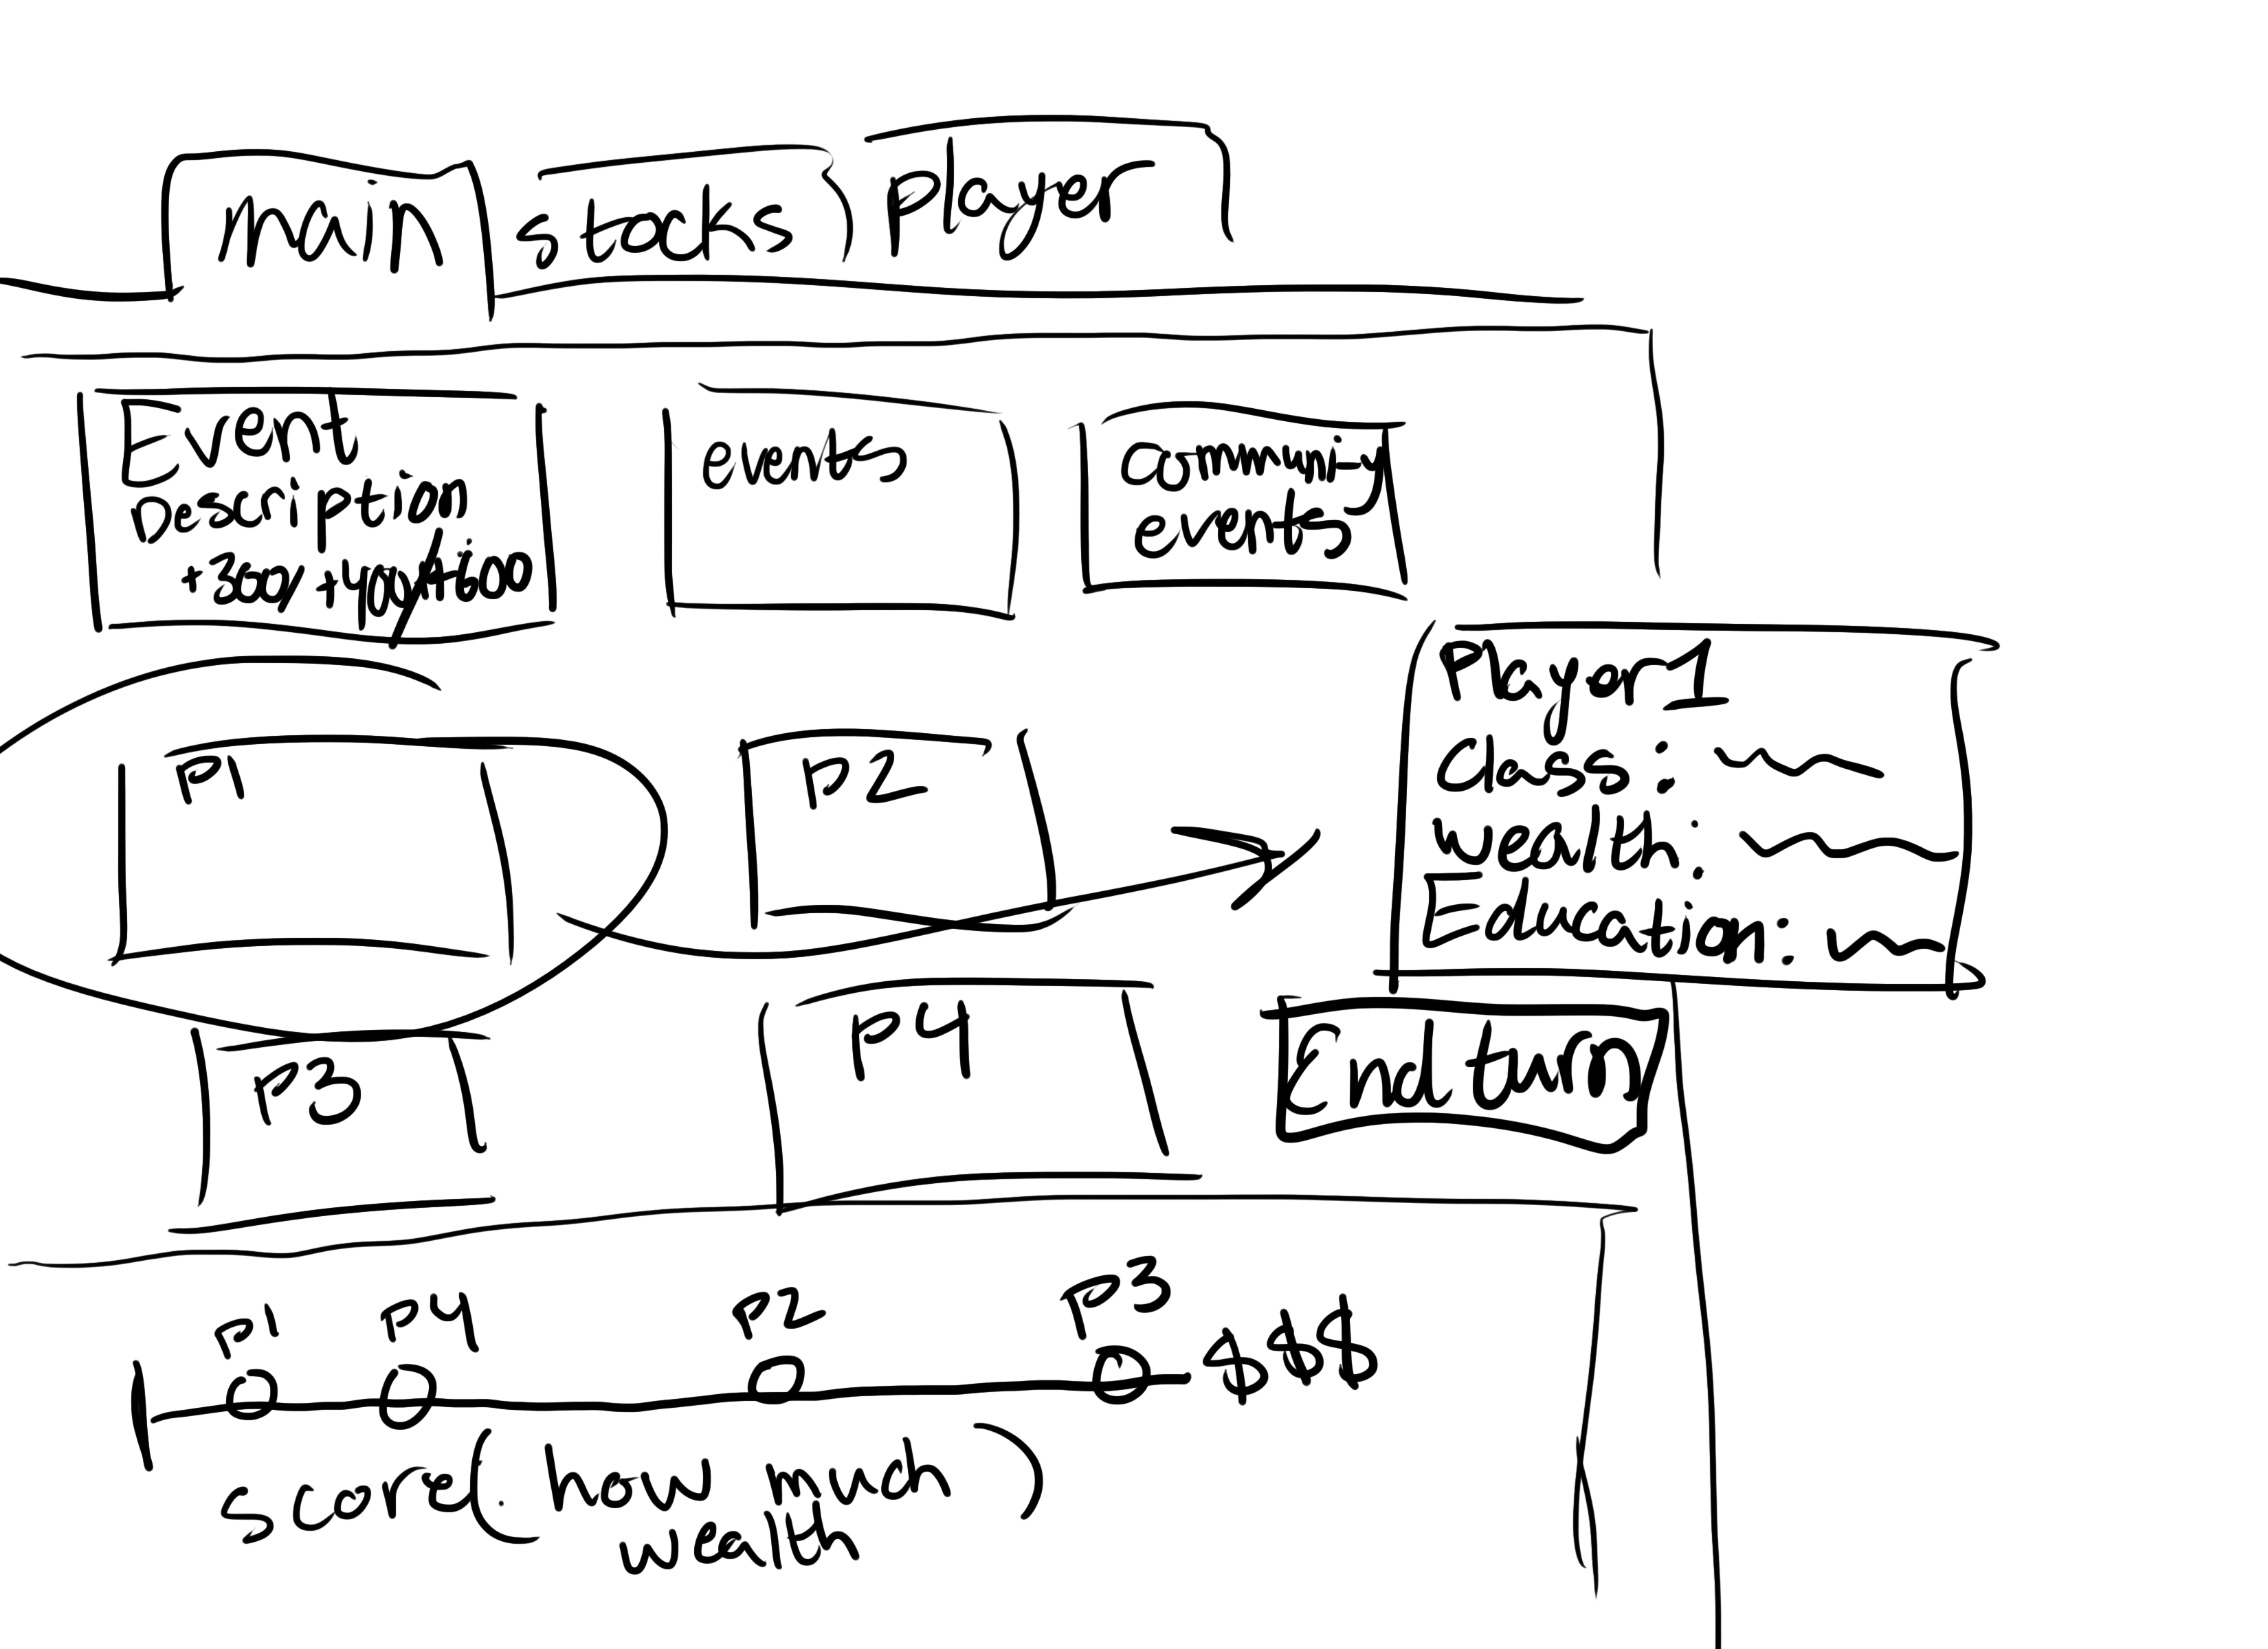 main
stocks
Player
Event
Description
+300/ +400/+600
events
communiy
events
P1
P2
Player 1
Class:
wealth:
Education:
P3
P4
End turn
P1
P4
P2
P3
$$$
score(. how much
wealth)